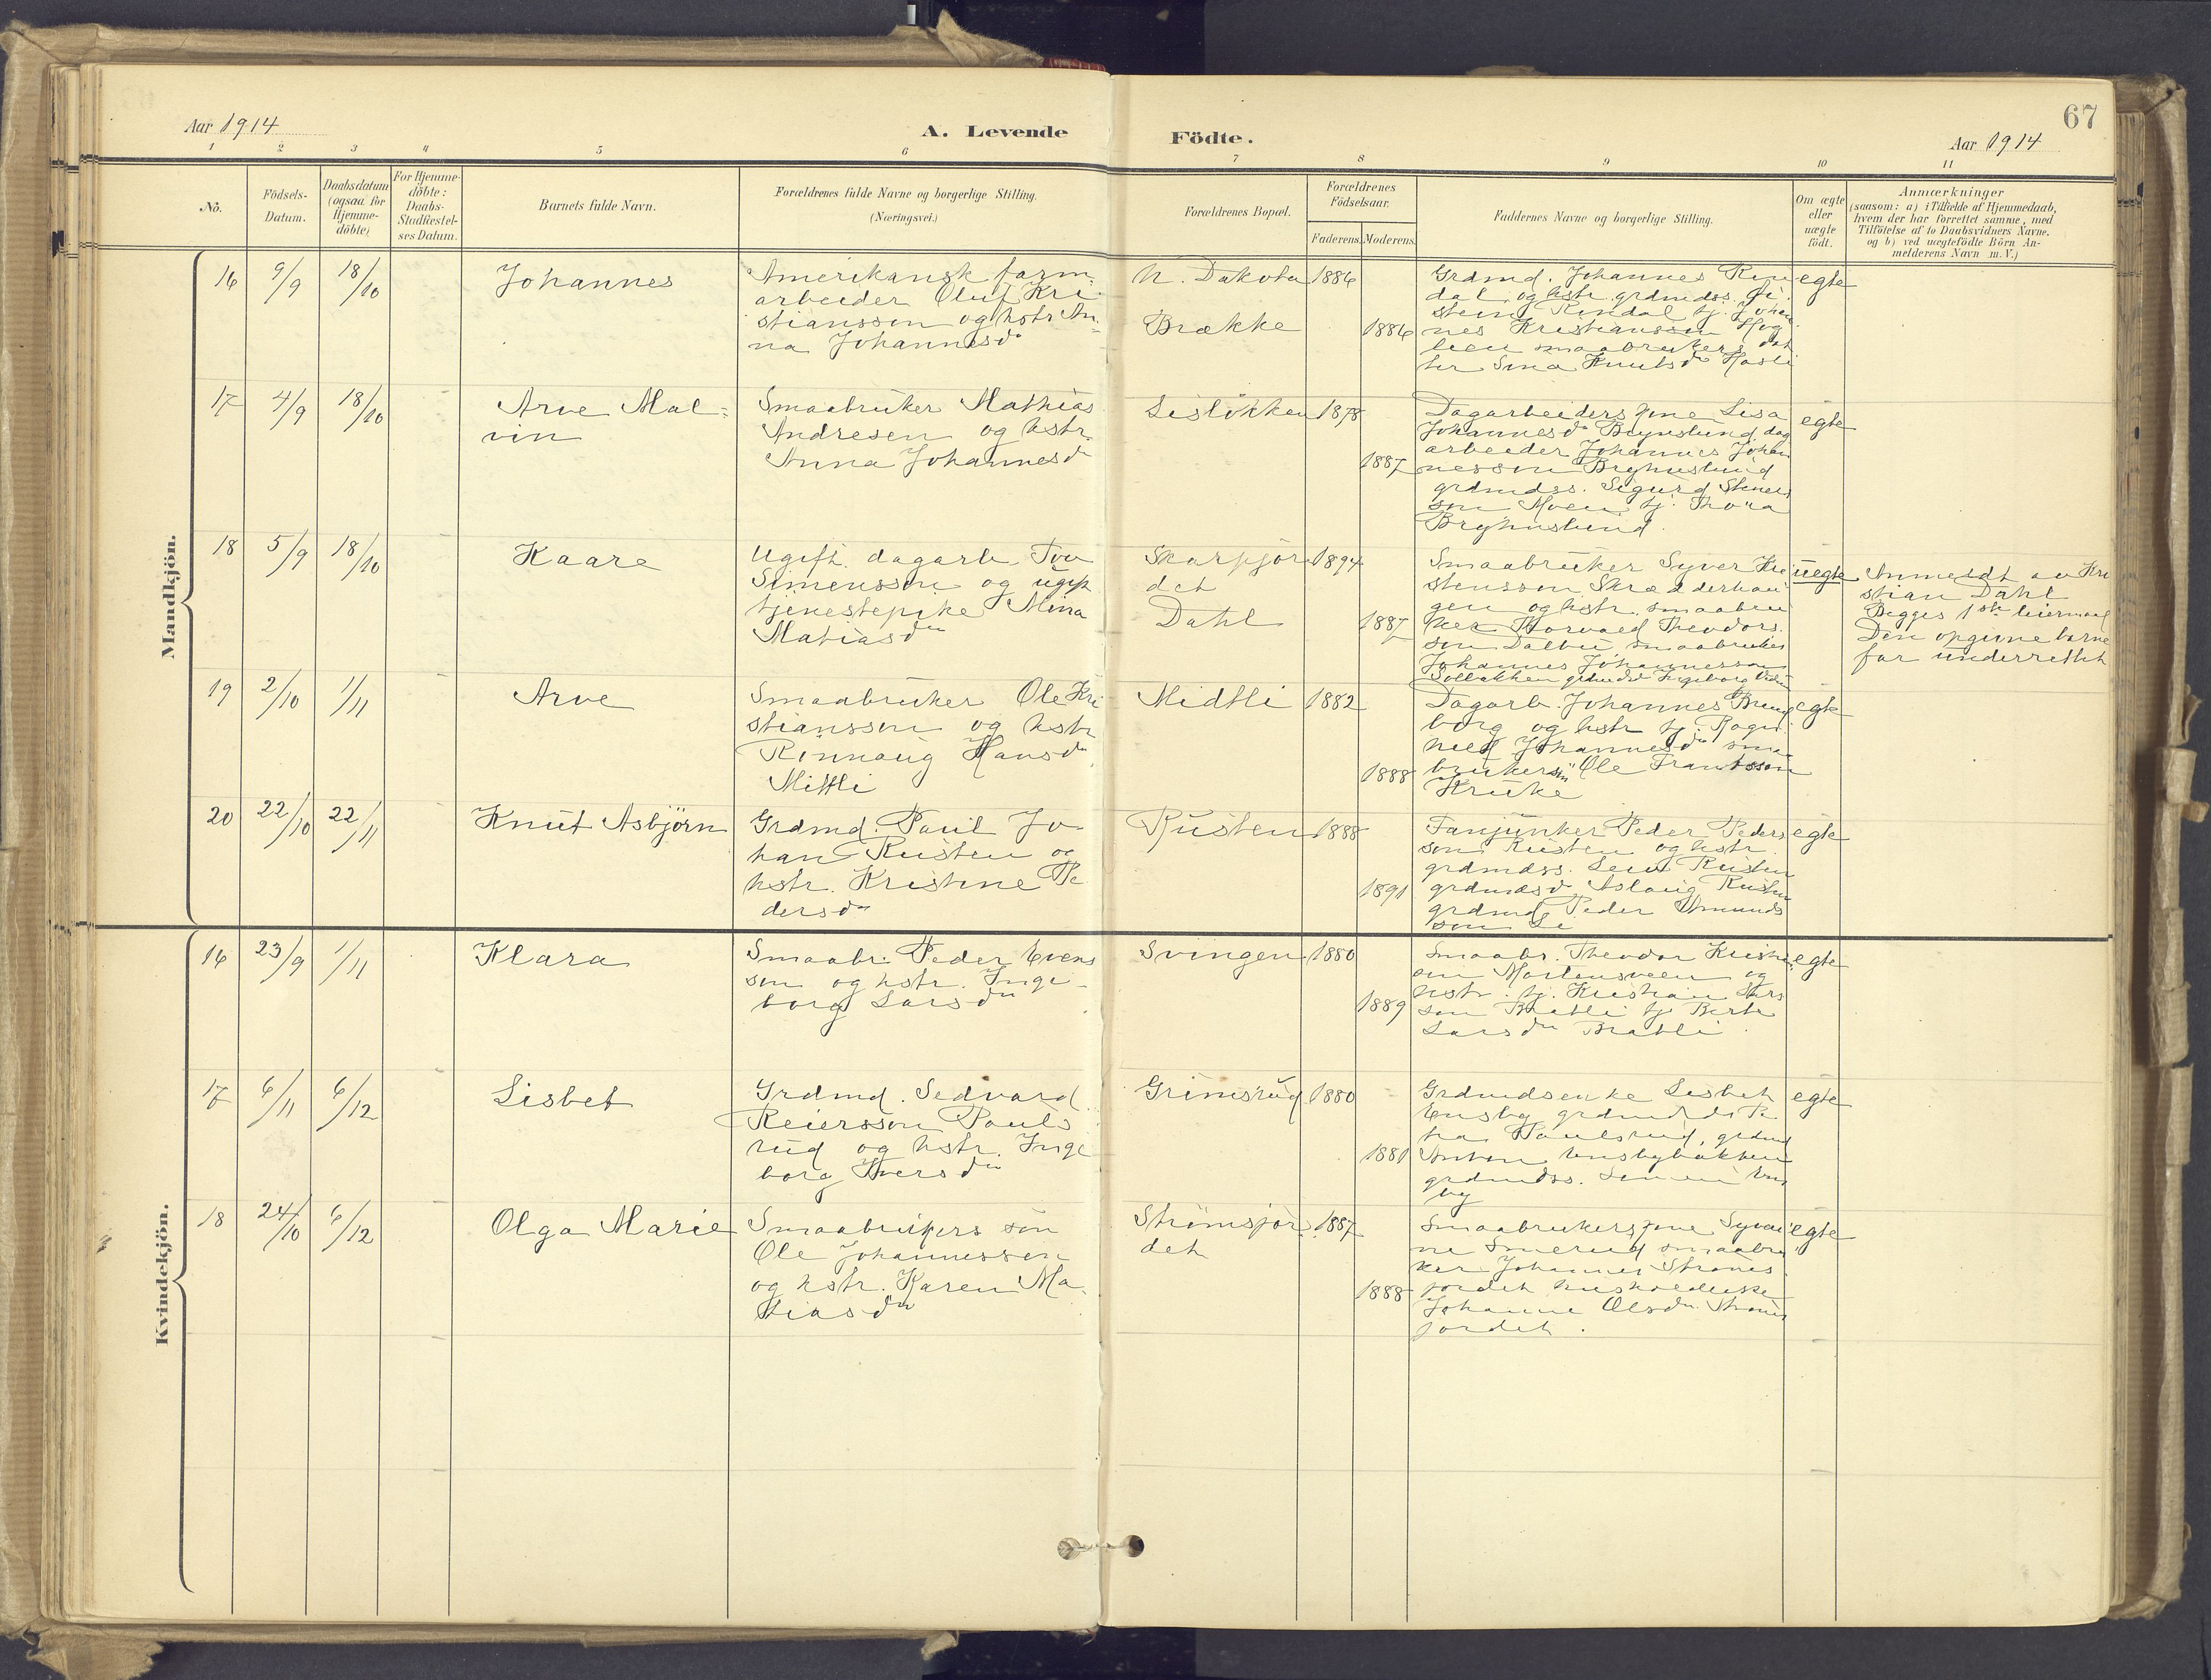 67
Aar 1914
A. Levende Födte.
Aar 1914
1 2 3 4 5 6 7 8 9 10 11
No.
Födsels-
Datum.
Daabsdatum
(ogsaa for
Hjemme-
döbte)
For Hjemme-
döbte:
Daabs-
Stadfæstel-
ses Datum.
Barnets fulde Navn.
Forældrenes fulde Navne og borgerlige Stilling.
(Næringsvei.)
Forældrenes Bopæl.
Forældrenes
Födselsaar.
Faderens. Moderens.
Faddernes Navne og borgerlige Stilling.
Om ægte
eller
uægte
födt.
Anmærkninger
(saasom: a) i Tilfælde af Hjemmedaab,
hvem der har forrettet samme, med
Tilföielse af to Daabsvidners Navne.
og b) ved uægtefödte Börn An-
melderens Navn m. V.)
Mandkjön.
16 9/9 18/10
Johannes
Amerikansk farm-
arbeider Oluf Kri-
stiansson og hstr An-
na Johannesdr
N. Dakota
Brække
1886
1886
Grdmd. Johannes Rin
dal og hstr. grdmdss.
stein Rindal tj. Johan
nes Kristiansson
smaabrukers dat
ter Sina Knutsdr
egte
17 4/9 18/10
Arve Mal-
vin
Smaabruker Mathias
Andresen og hstr.
Anna Johannesdr
Lislökken
1878
1887
Dagarbeiders kone Lisa
Johannesdr Brynslund dag
arbeider Johannes Johan
nesson Bryhnslund
grdmdss. Sigurd
son Moen tj. Thora
Bryhnslund.
egte
18 5/9 18/10
Kaare
Ugift. dagarb.
Simensson og ugift
tjenestepike Mina
Matiasdr
Skarpjor
det
Dahl
1894
1887
Smaabruker Syver Kri
stensson Skrædderhau
gen og hstr. smaabru
ker Thorvald Theodors
son Dalbu smaabruker
Johannes Johannesson
Solbakken grdmdsd Ingeborg
uegte
Anmeldt av Kri
stian Dahl
Begges 1ste leiermaal
Den opgivne barne
far underrettet
19 2/10 1/11
Arve
Smaabruker Ole Kri
stiansson og hstr
Rönnaug Hansdr
Mittli
Midtli
1882
1888
Dagarb. Johannes Breng
borg og hstr tj. Ragn
hild Johannesdr smaa
brukersön Ole Frantsson
Kruke
egte
20 22/10 22/11
Knut Asbjörn
Grdmd. Paul Jo-
han Rusten og
hstr. Kristine Pe
dersdr
Rusten
1888
1891
Fanjunker Peder Peders
son Rusten og hstr.
grdmdss. Rusten
grdmdsd Aslaug Rusten
grdmd Peder Amunds
son Lie
egte
Kvindekjön.
16 23/9 1/11
Klara
Smaabr. Peder Evens
son og hstr. Inge-
borg Larsdr
Svingen
1880
1889
Smaabr. Theodor
Mortensveen og
hstr. tj. Kristian Lars
son Bratli tj. Berte
Larsdr Bratli
egte
17 6/11 6/12
Lisbet
Grdmd. Sedvard
Reiersson Pauls
rud og hstr. Inge
borg Iversdr
Grimsrud
1880
1881
Grdmdsenke Lisbet
Ensby
Paulsrud, grdmd
Anton Ensbybakken
grdmdss. Simen Ens
by
egte
18 24/10 6/12
Olga Marie
Smaabrukers sön
Ole Johannessen
og hstr. Karen Ma-
tiasdr
Strömsjor
det
1887
1888
Smaabrukers kone Syver
ne Smerud smaabru
ker Johannes Ströms
jordet husholderske
Johanne Olsdr Ströms
jordet.
egte